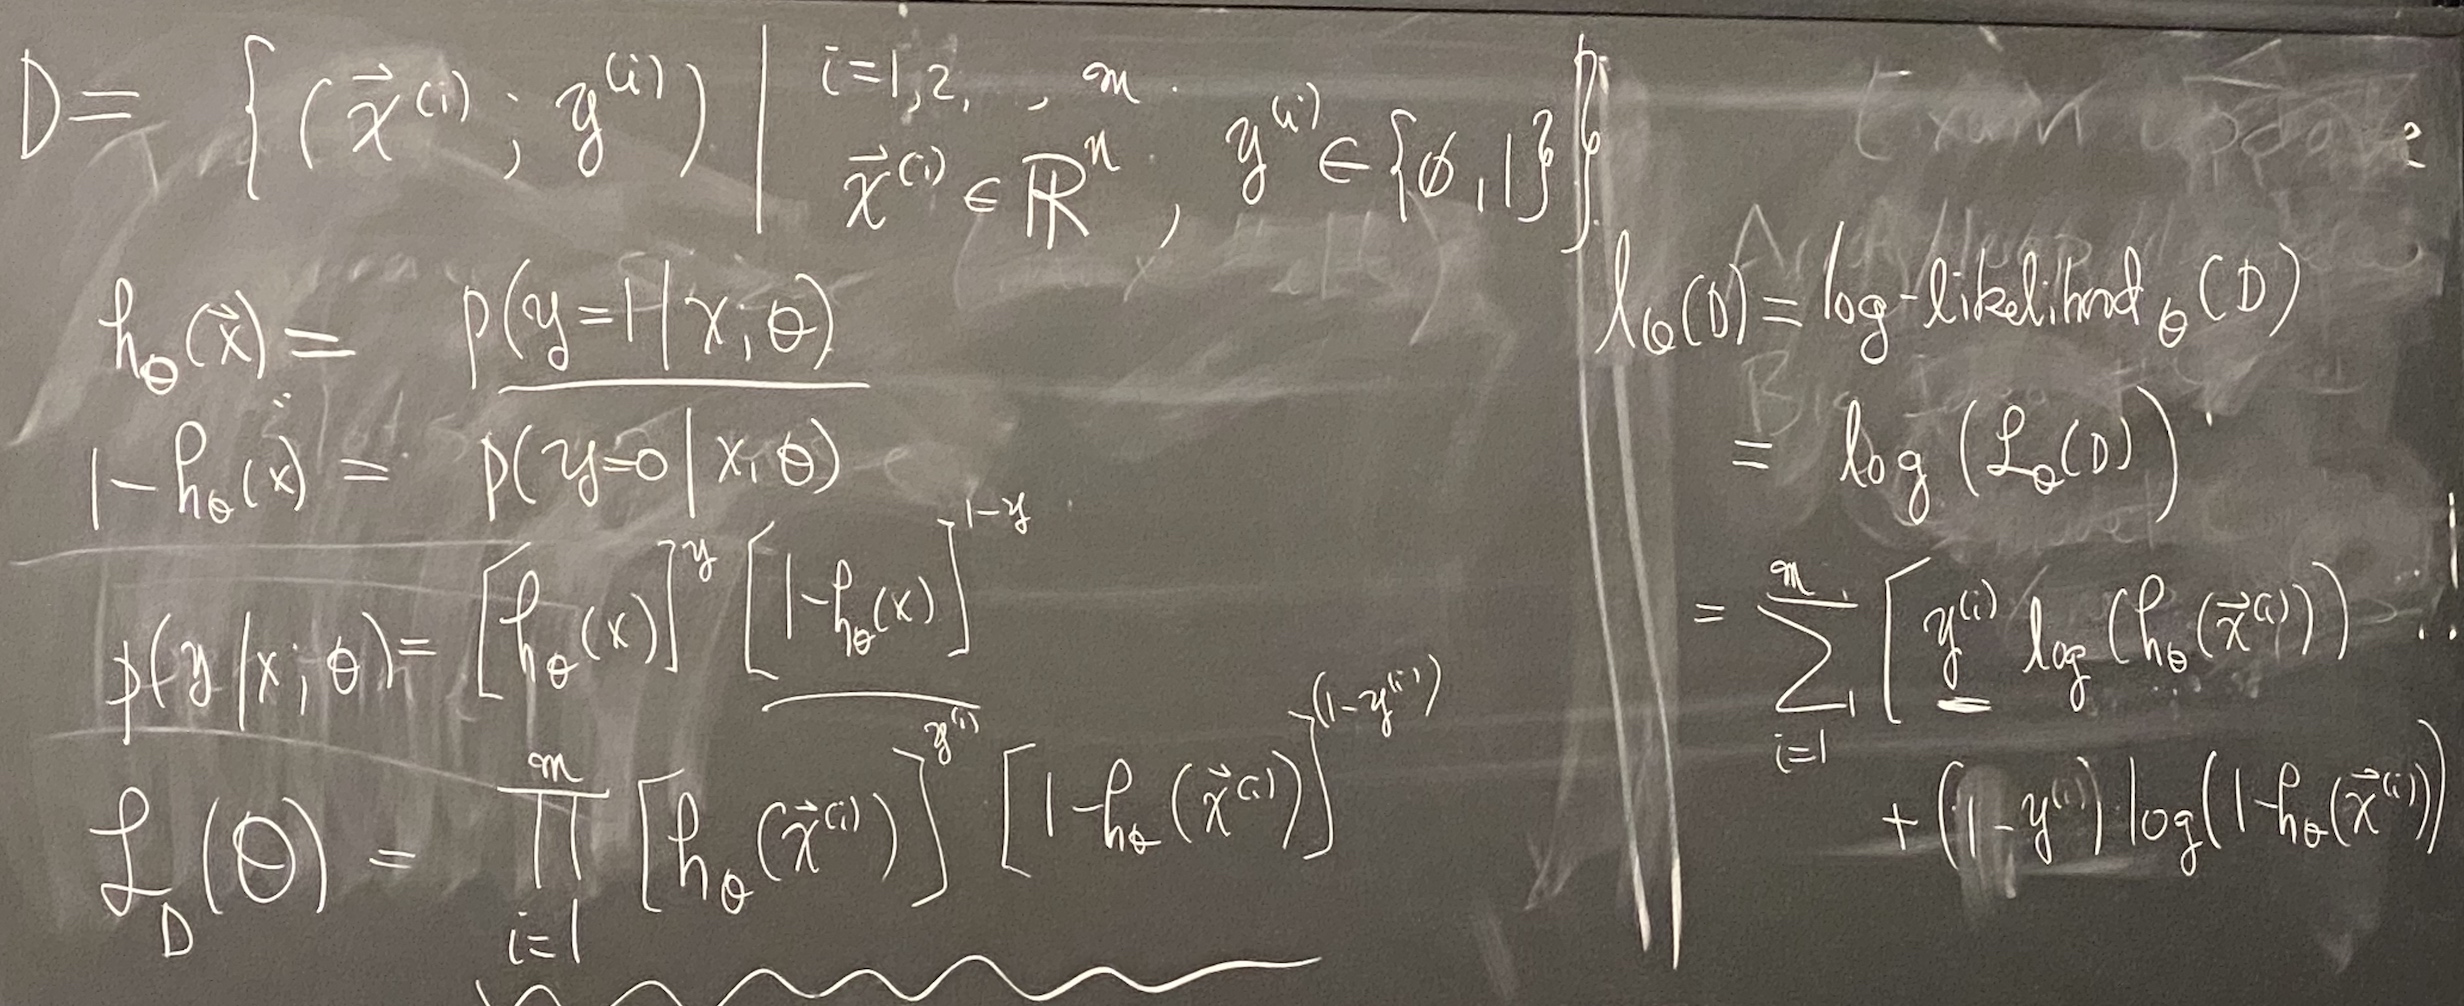 D = { (x⃗^(i) ; y^(i)) | i=1,2, , m. x⃗^(i) ∈ ℝ^n , y^(i) ∈ {∅, 1} }
h_θ(x⃗) = p(y=1 | x; θ)
1-h_θ(x) = p(y=0 | x; θ)
p(y | x; θ) = [h_θ(x)]^y [1-h_θ(x)]^1-y
ℒ_D(θ) = ∏_{i=1}^{m} [h_θ(x⃗^(i))]^y^(i) [1-h_θ(x⃗^(i))]^(1-y^(i))
l_θ(D) = log-likelihood_θ(D)
= log(ℒ_θ(D))
= ∑_{i=1}^{m} [ y^(i) log(h_θ(x⃗^(i)))
+ (1-y^(i)) log(1-h_θ(x⃗^(i)))
Exam update